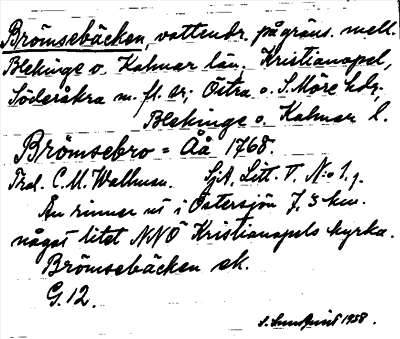 Brömsebäcken, vattendr. på gräns. mell.
Blekinge o. Kalmar län. Kristianopel,
Söderåkra m. fl. sr; Östra o. S. Möre hdr,
Blekinge o. Kalmar l.
Brömsebro = Åå 1768.
Trol. C. M. Wallman. SjA. Litt. T. N:o 1.
Ån rinner ut i Östersjön 7,5 km.
något litet NNÖ Kristianopels kyrka.
Brömsebäcken ek.
G. 12.
S. Sundquist 1958.